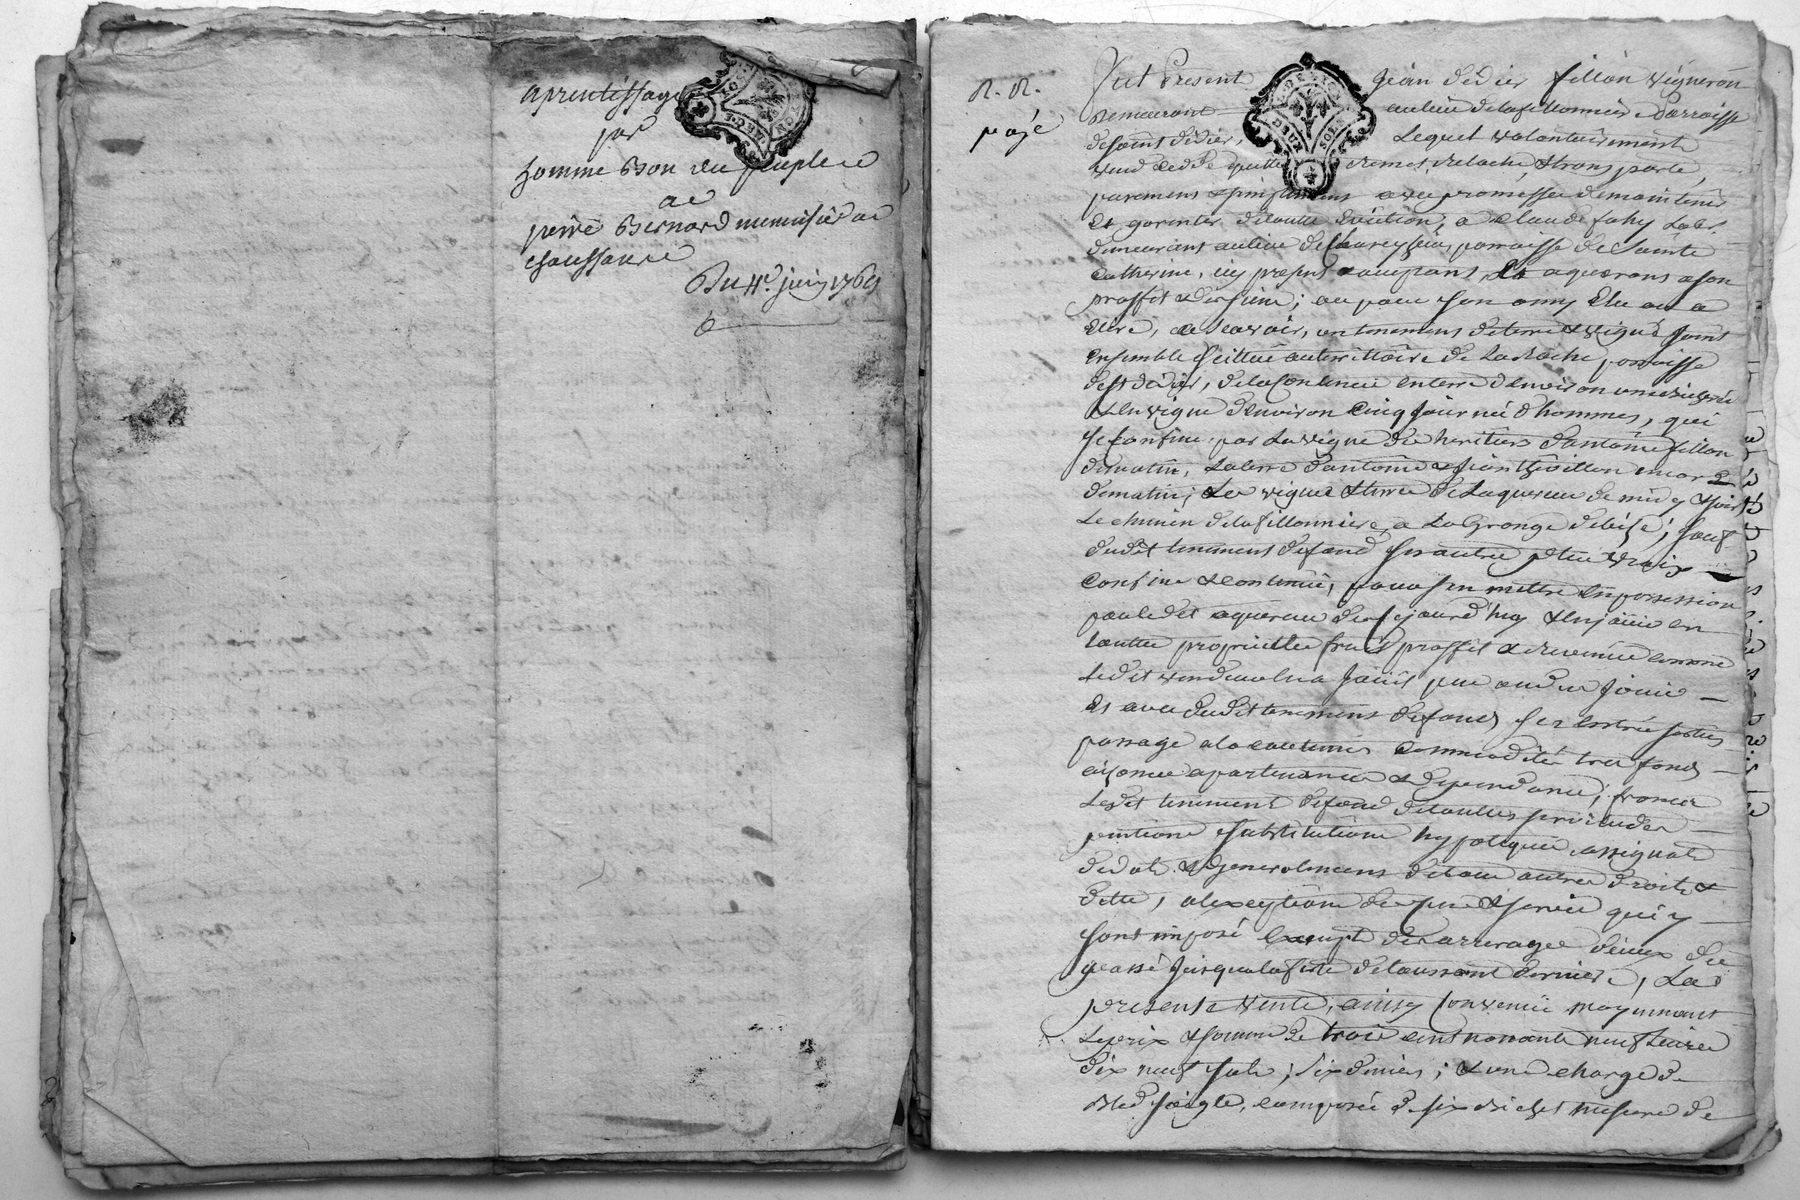 aprentissage
par
homme Bon du peuple
a
pierre Bernard menuisier
Du 4e juin 1769
R. R.
payé
Fut Present Jean dédier fillon vigneron
demeurant au lieu de la fillonniere Parroisse
de saint dédier, Lequel volontairement
vend cedde quitte remet relache & transporte,
purement & simplement avec promesse de maintenir
Et garentir de toutte eviction, a claude fahy Lab.
demeurant au lieu de parroisse de Sainte
Catherine, icy present acceptant, Et aquerans a son
proffit & des siens; ou pour son amy Elu ou a
Elire, a Scavoir, un tenement de terre & vigne joint
Ensemble scittué au territtoire de La Roche parroisse
de st dédier, de la Contenue en terre d'environ
& En vigne d'environ Cinq journée d'hommes, qui
se confine par La vigne des heritiers d'antoine fillon
de matin, La terre d'antoine & jean encor de
de matin; Les vigne & terre de Laquereur de midy & soir
Le chemin de la fillonniere a La Grange de bise; sauf
dudit tenement de fond ses autres plus vrais
Confins & contenue, pour s'en mettre En possession
par ledit aquereur des ce jourd'huy & En jouir en
toutte proprietée fruit proffit & revenue comme
Ledit vendeur En a jouit pue ou du jouir
Et avec dudit tenement de fond ses entrée sorties
passage a la coutumés commoditée tres fond
aisance apartenance & dependance; franc
Ledit tenement de fond de touttes servitudes
pention substitutions hypoteque, assignats
de dot & generalement de tous autres droits &
dette, a l'exception des cens & servis qui y
sont imposé Exempt des arrerages d'iceux du
passé jusqu'a la feste de toussaint dernier, La
presente vente, ainsy convenue moyennant
Le prix & somme de trois cent nonante neuf Livres
dix neuf sols, six deniers; & une charge de
Bled seigle, composée de six bichet mesure de